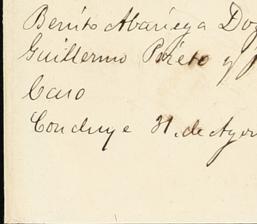 Benito Abariega Doz
Guillermo Prieto y
Caso
Concluye 31. de Agos